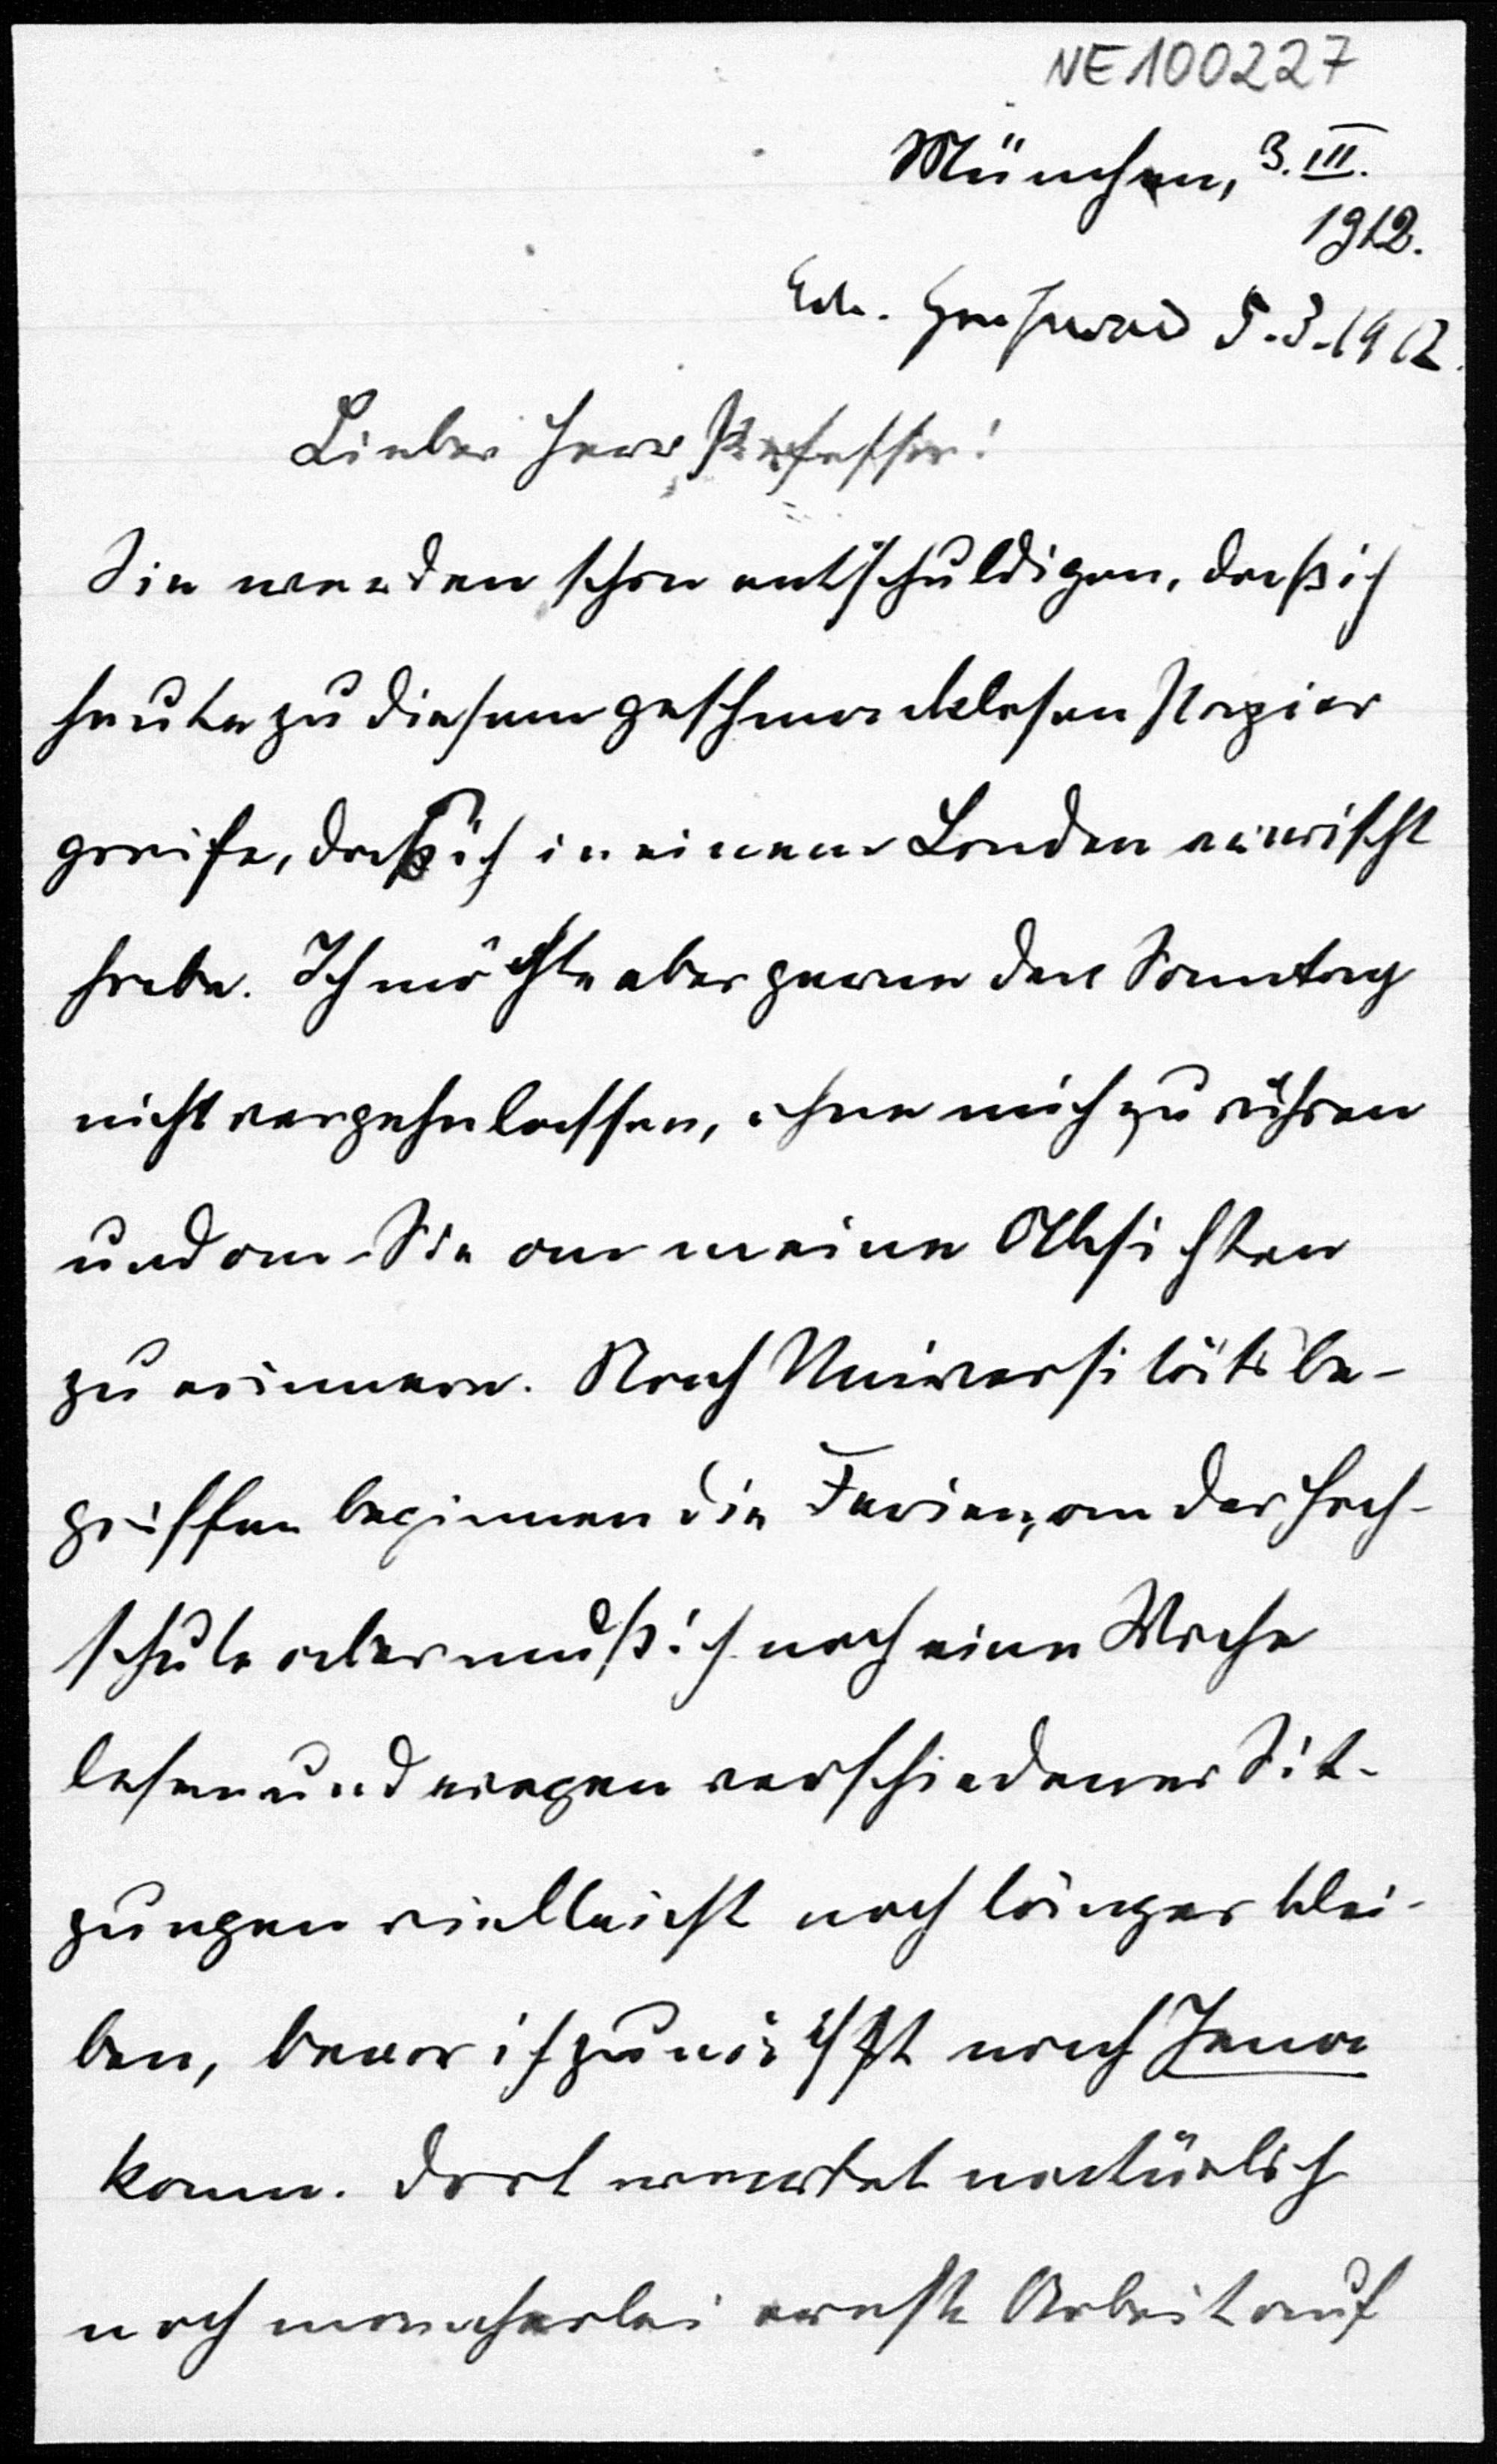 NE100227
München, 3. III.
1912.
5.3.1912.
Lieber Herr Professor!
Sie werden schon entschuldigen, daß ich
heute zu diesem geschmacklosen Papier
greife, daß ich in einem Laden erwischt
habe. Ich möchte aber gerne den Sonntag
nicht vergehn lassen, ohne mich zu rühren
und an Sie an meine Absichten
zu erinnern. Nach Universitätsbe-
griffen beginnen die Ferien, an der Hoch-
schule aber muß ich noch eine Woche
lesen und wegen verschiedener Sit-
zungen vielleicht noch länger blei-
ben, bevor ich zunächst nach Jena
komm. Dort wartet natürlich
noch mancherlei ernste Arbeit auf